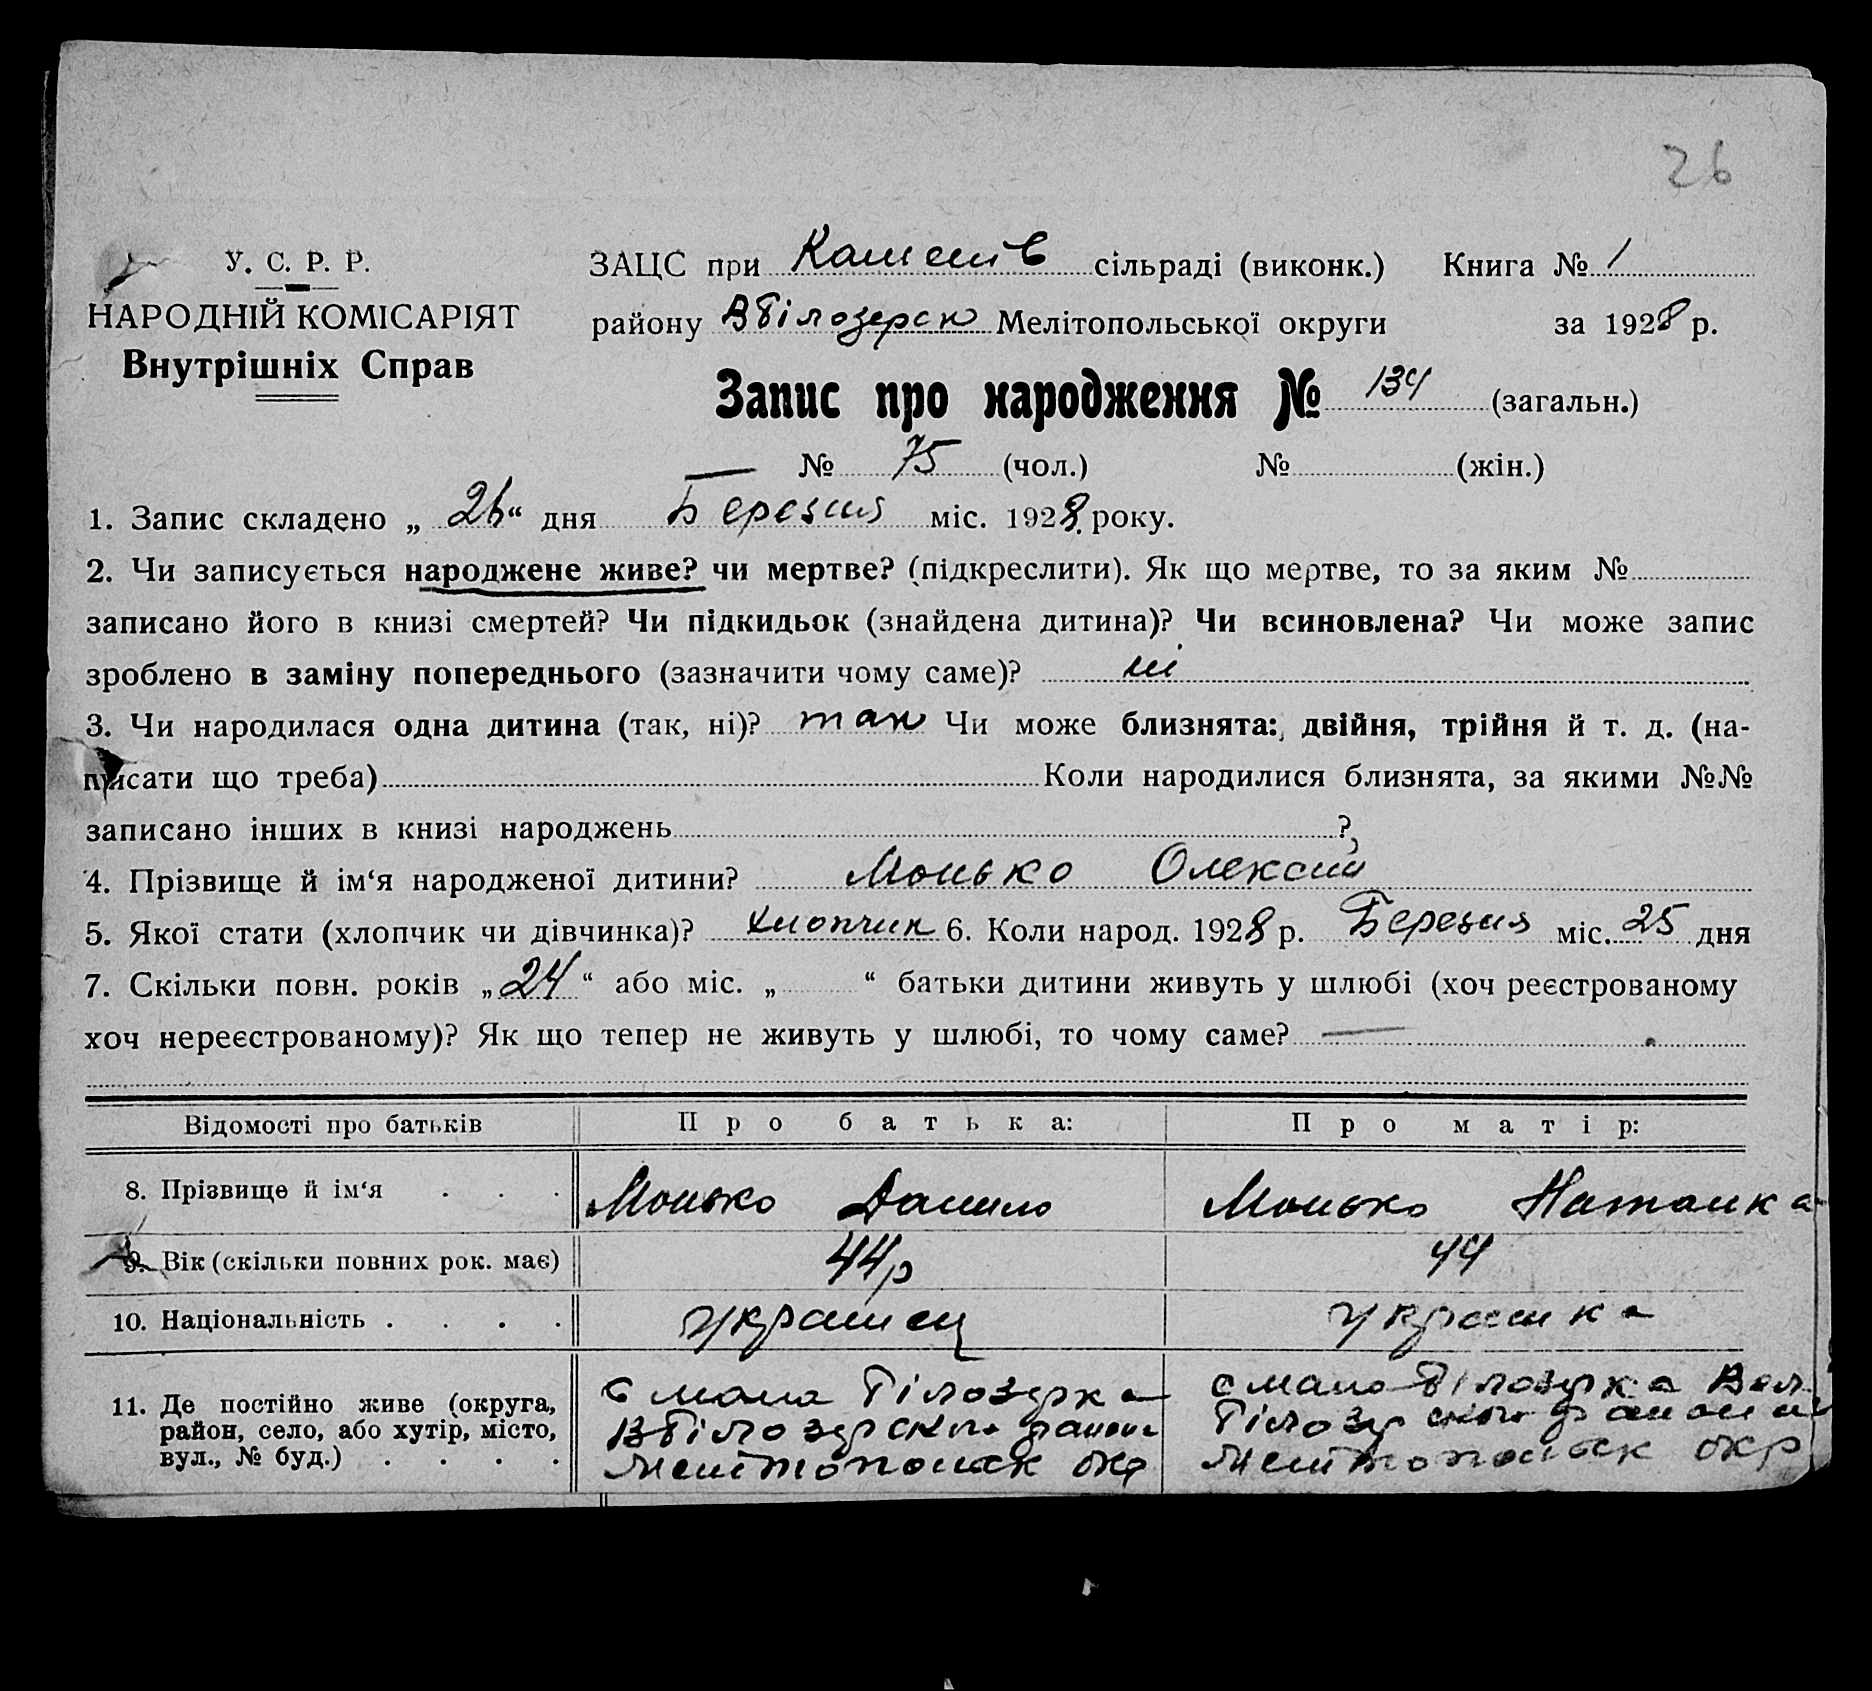 26
У. С. Р. Р.
НАРОДНІЙ КОМІСАРІЯТ
Внутрішніх Справ
ЗАЦС при сільраді (виконк.) Книга № 1
району ВБілозерск Мелітопольської округи за 1928 р.
Запис про народження № 134 (загальн.)
№ 75 (чол.) № (жін.)
1. Запис складено „ 26 “ дня Березня міс. 1928 року.
2. Чи записується народжене живе? чи мертве? (підкреслити). Як що мертве, то за яким №
записано його в книзі смертей? Чи підкидьок (знайдена дитина)? Чи всиновлена? Чи може запис
зроблено в заміну попереднього (зазначити чому саме)? ні
3. Чи народилася одна дитина (так, ні)? так Чи може близнята: двійня, трійня й т. д. (на-
писати що треба) Коли народилися близнята, за якими №№
записано інших в книзі народжень ?
4. Прізвище й ім‘я народженої дитини? Монько Олексій
5. Якої стати (хлопчик чи дівчинка)? хлопчик 6. Коли народ. 1928 р. Березня міс. 25 дня
7. Скільки повн. років „ 24 “ або міс. „ “ батьки дитини живуть у шлюбі (хоч реєстрованому
хоч нереєстрованому)? Як що тепер не живуть у шлюбі, то чому саме? —
Відомості про батьків Про батька: Про матір:
8. Прізвище й ім‘я . . . Монько Данило Монько Наталка
9. Вік (скільки повних рок. має) 44р 44
10. Національність . . . . українец українка
11. Де постійно живе (округа, район, село, або хутір, місто, вул., № буд.) . . . .
с мала Білозерка
ВБілозерского района
Мелітопольск окр
с мало Білозерка Вел
Білозерского района
Мелітопольск окр